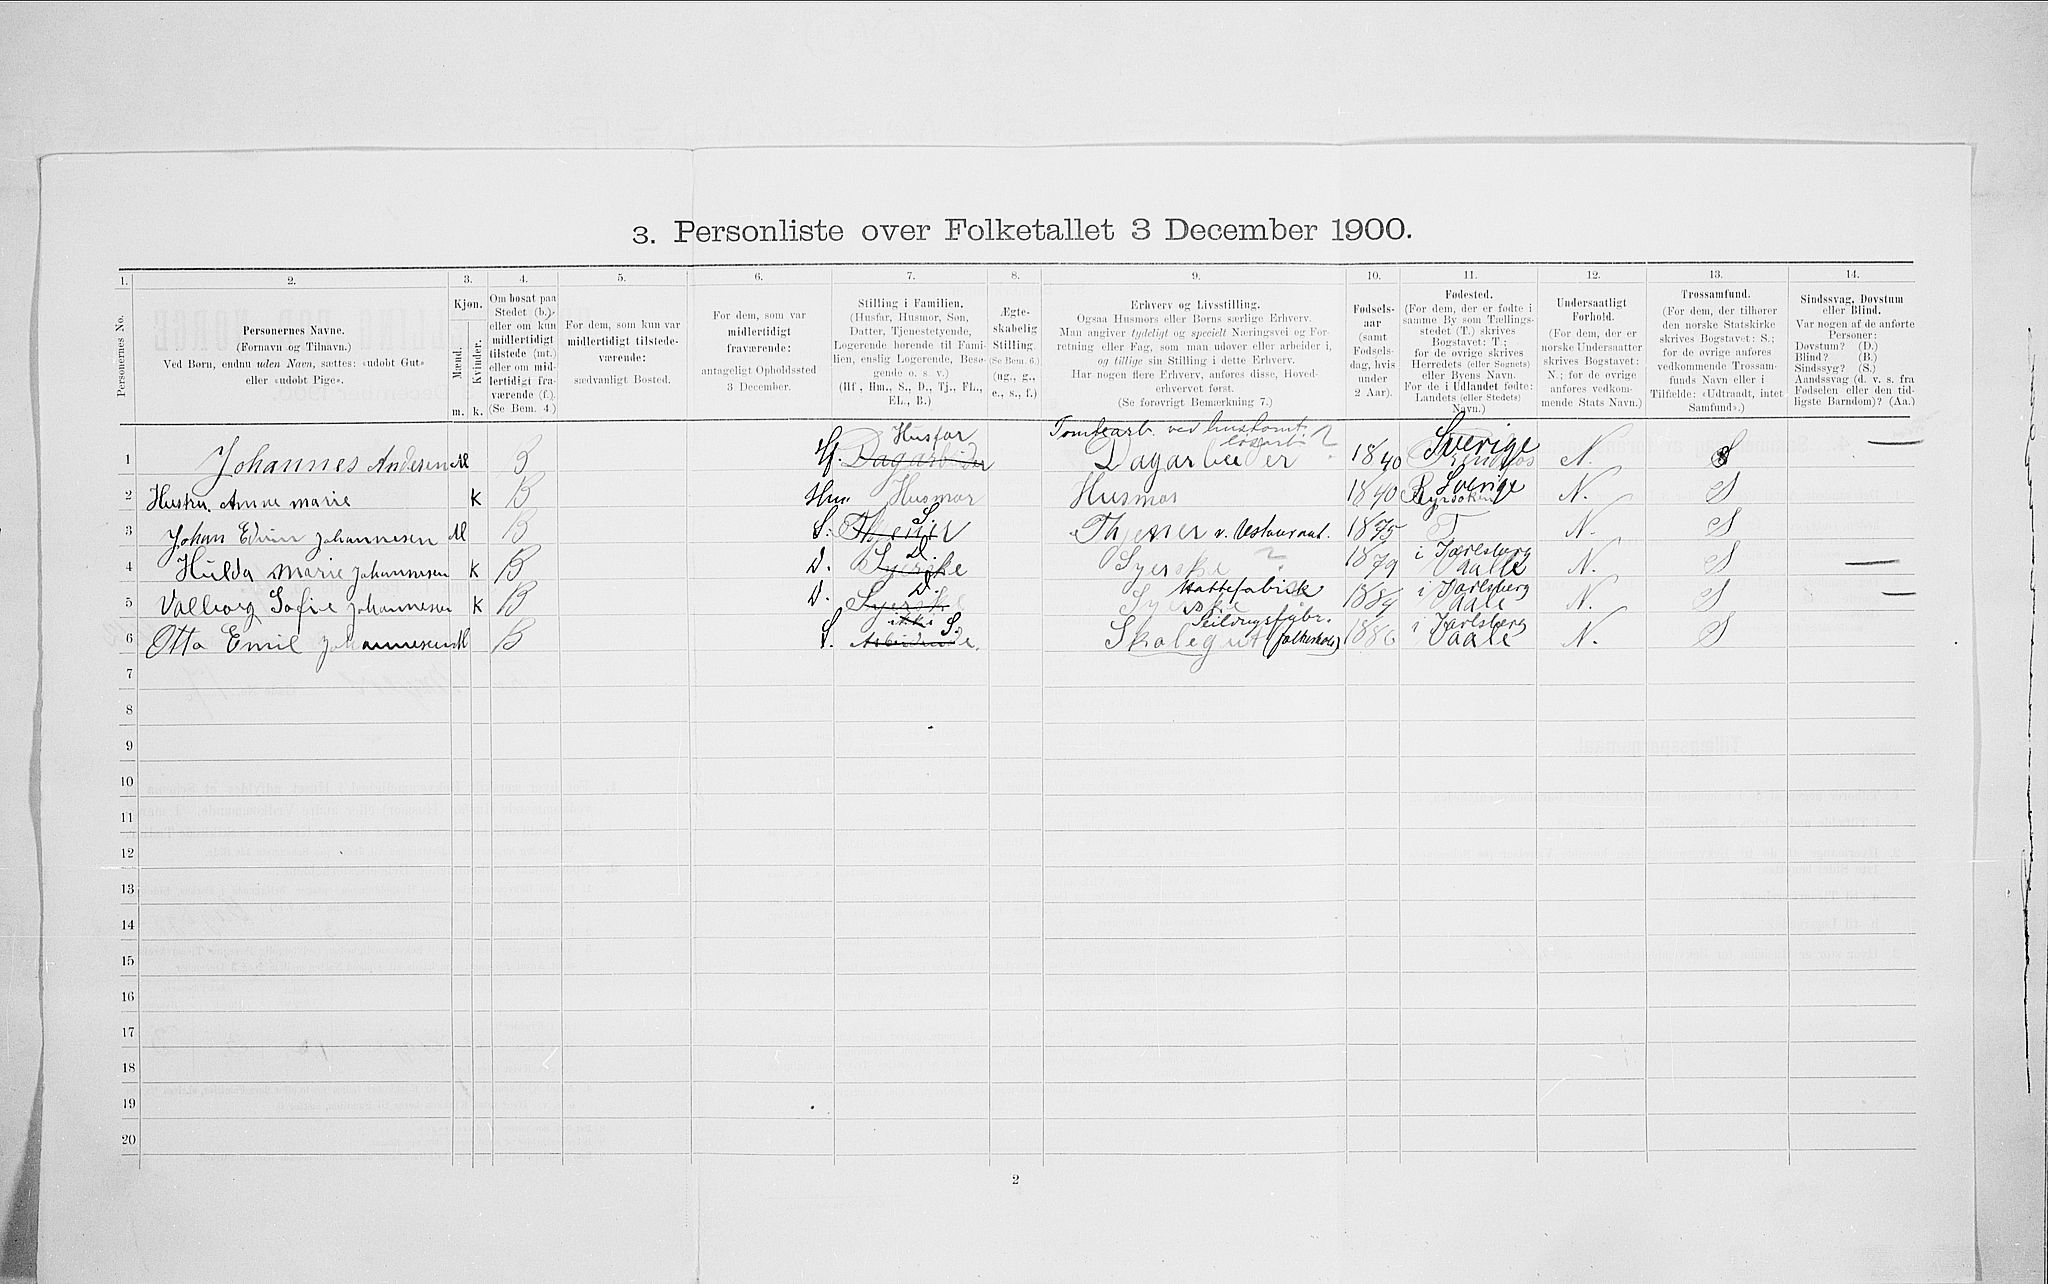 3. Personliste over Folketallet 3 December 1900.
1. 2. 3. 4. 5. 6. 7. 8. 9. 10. 11. 12. 13. 14.
Personernes No.
Personernes Navne.
(Fornavn og Tilnavn.)
Ved Børn, endnu uden Navn, sættes: «udøbt Gut»
eller «udøbt Pige».
Kjøn.
Mænd.
Kvinder.
m. k.
Om bosat paa
Stedet (b.)
eller om kun
midlertidigt
tilstede (mt.)
eller om mid-
lertidigt fra-
værende (f.).
(Se Bem. 4.)
For dem, som kun var
midlertidigt tilstede-
værende:
sædvanligt Bosted.
For dem, som var
midlertidigt
fraværende:
antageligt Opholdssted
3 December.
Stilling i Familien.
(Husfar, Husmor, Søn,
Datter, Tjenestetyende,
Logerende hørende til Fami-
lien, enslig Logerende, Besø-
gende o. s. v.)
(Hf., Hm., S., D., Tj., FL.,
EL., B.)
Ægte-
skabelig
Stilling.
(Se Bem. 6.)
(ug., g.,
e., s., f.)
Erhverv og Livsstilling.
Ogsaa Husmors eller Børns særlige Erhverv.
Man angiver tydeligt og specielt Næringsvei og For-
retning eller Fag, som man udøver eller arbeider i,
og tillige sin Stilling i dette Erhverv.
Har nogen flere Erhverv, anføres disse, Hoved-
erhvervet først.
(Se forøvrigt Bemærkning 7.)
Fødsels-
aar
(samt
Fødsels-
dag, hvis
under
2 Aar).
Fødested.
(For dem, der er fødte i
samme By som Tællings-
stedet (T.) skrives
Bogstavet: T.;
for de øvrige skrives
Herredets (eller Sognets)
eller Byens Navn.
For de i Udlandet fødte:
Landets (eller Stedets)
Navn.)
Undersaatligt
Forhold.
(For dem, der er
norske Undersaatter
skrives Bogstavet:
N.; for de øvrige
anføres vedkom-
mende Stats Navn.)
Trossamfund.
(For dem, der tilhører
den norske Statskirke
skrives Bogstavet: S.;
for de øvrige anføres
vedkommende Trossam-
funds Navn eller i
Tilfælde: «Udtraadt, intet
Samfund».)
Sindssvag, Døvstum
eller Blind.
Var nogen af de anførte
Personer:
Døvstum? (D.)
Blind? (B.)
Sindssyg? (S.)
Aandssvag (d. v. s. fra
Fødselen eller den tid-
ligste Barndom)? (Aa.)
1 Johannes Andersen M B Hf. Husfar Dagarbeider Tomtearb. ved Dagarbeider ? 1840 Sverige N. S
2 Hustru Anne Marie K B Hm. Husmor Husmor 1840 Sverige N. S
3 Johan Edvin Johannesen M B S. S. Thjener Thjener v. Restaurant. 1875 T N. S
4 Hulda Marie Johannesen K B D. D. Syerske Syerske ? 1879 i Jarlsberg Vaale N. S
5 Valborg Sofie Johannesen K B D. D. Syerske Hattefabrik Syerske 1884 i Jarlsberg Vaale N. S
6 Otto Emil Johannesen M B S. ikke S. Arbeidende. Skolegut (folkeskole) 1886 i Jarlsberg Vaale N. S
7
8
9
10
11
12
13
14
15
16
17
18
19
20
2